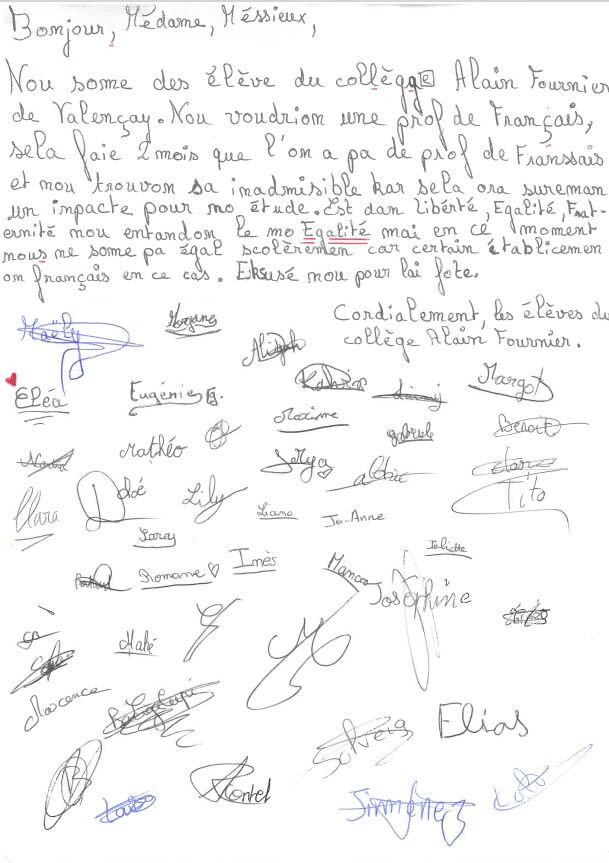 Bonjour, Médame, Méssieux,
Nou some des élève du collègge Alain Fournier
de Valençay. Nou voudrion une prof de Français,
sela faie 2 mois que l'on a pa de prof de Franssais
et nou trouvon sa inadmisible kar sela ora sureman
un impacte pour no étude. Est dan liberté, Egalité, Frat-
ernité nou entandon le mo Egalité mai en ce moment
nous ne some pa égal scolèremen car certain établicemen
on français en ce cas. Eksusé nou pour lai fote.
Cordialement, les élèves du
collège Alain Fournier.
Maëly
Morgane
Aliyah
Margot
Eléa
Eugénie
Maxime
gabriele
Benoit
Mathéo
Clara
Zoé
Lily
Liana
Jo-Anne
Tito
Saray
Romane
Inès
Manon
Juliette
Joséphine
Mahé
Maxence
Solveig
Elias
Jimmenez